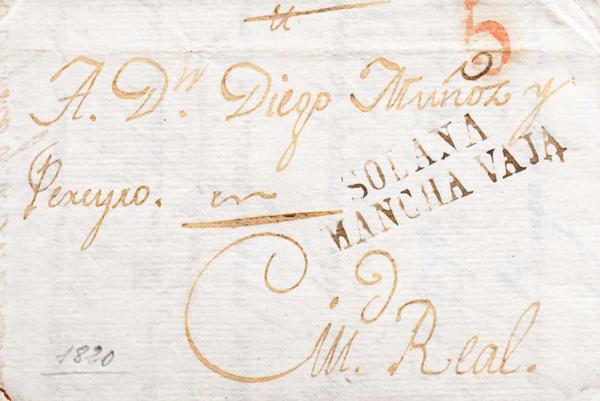 5
A. Dn. Diego Muñoz y
Pereyro. en
SOLANA
MANCHA VAJA
Ciud. Real.
1820